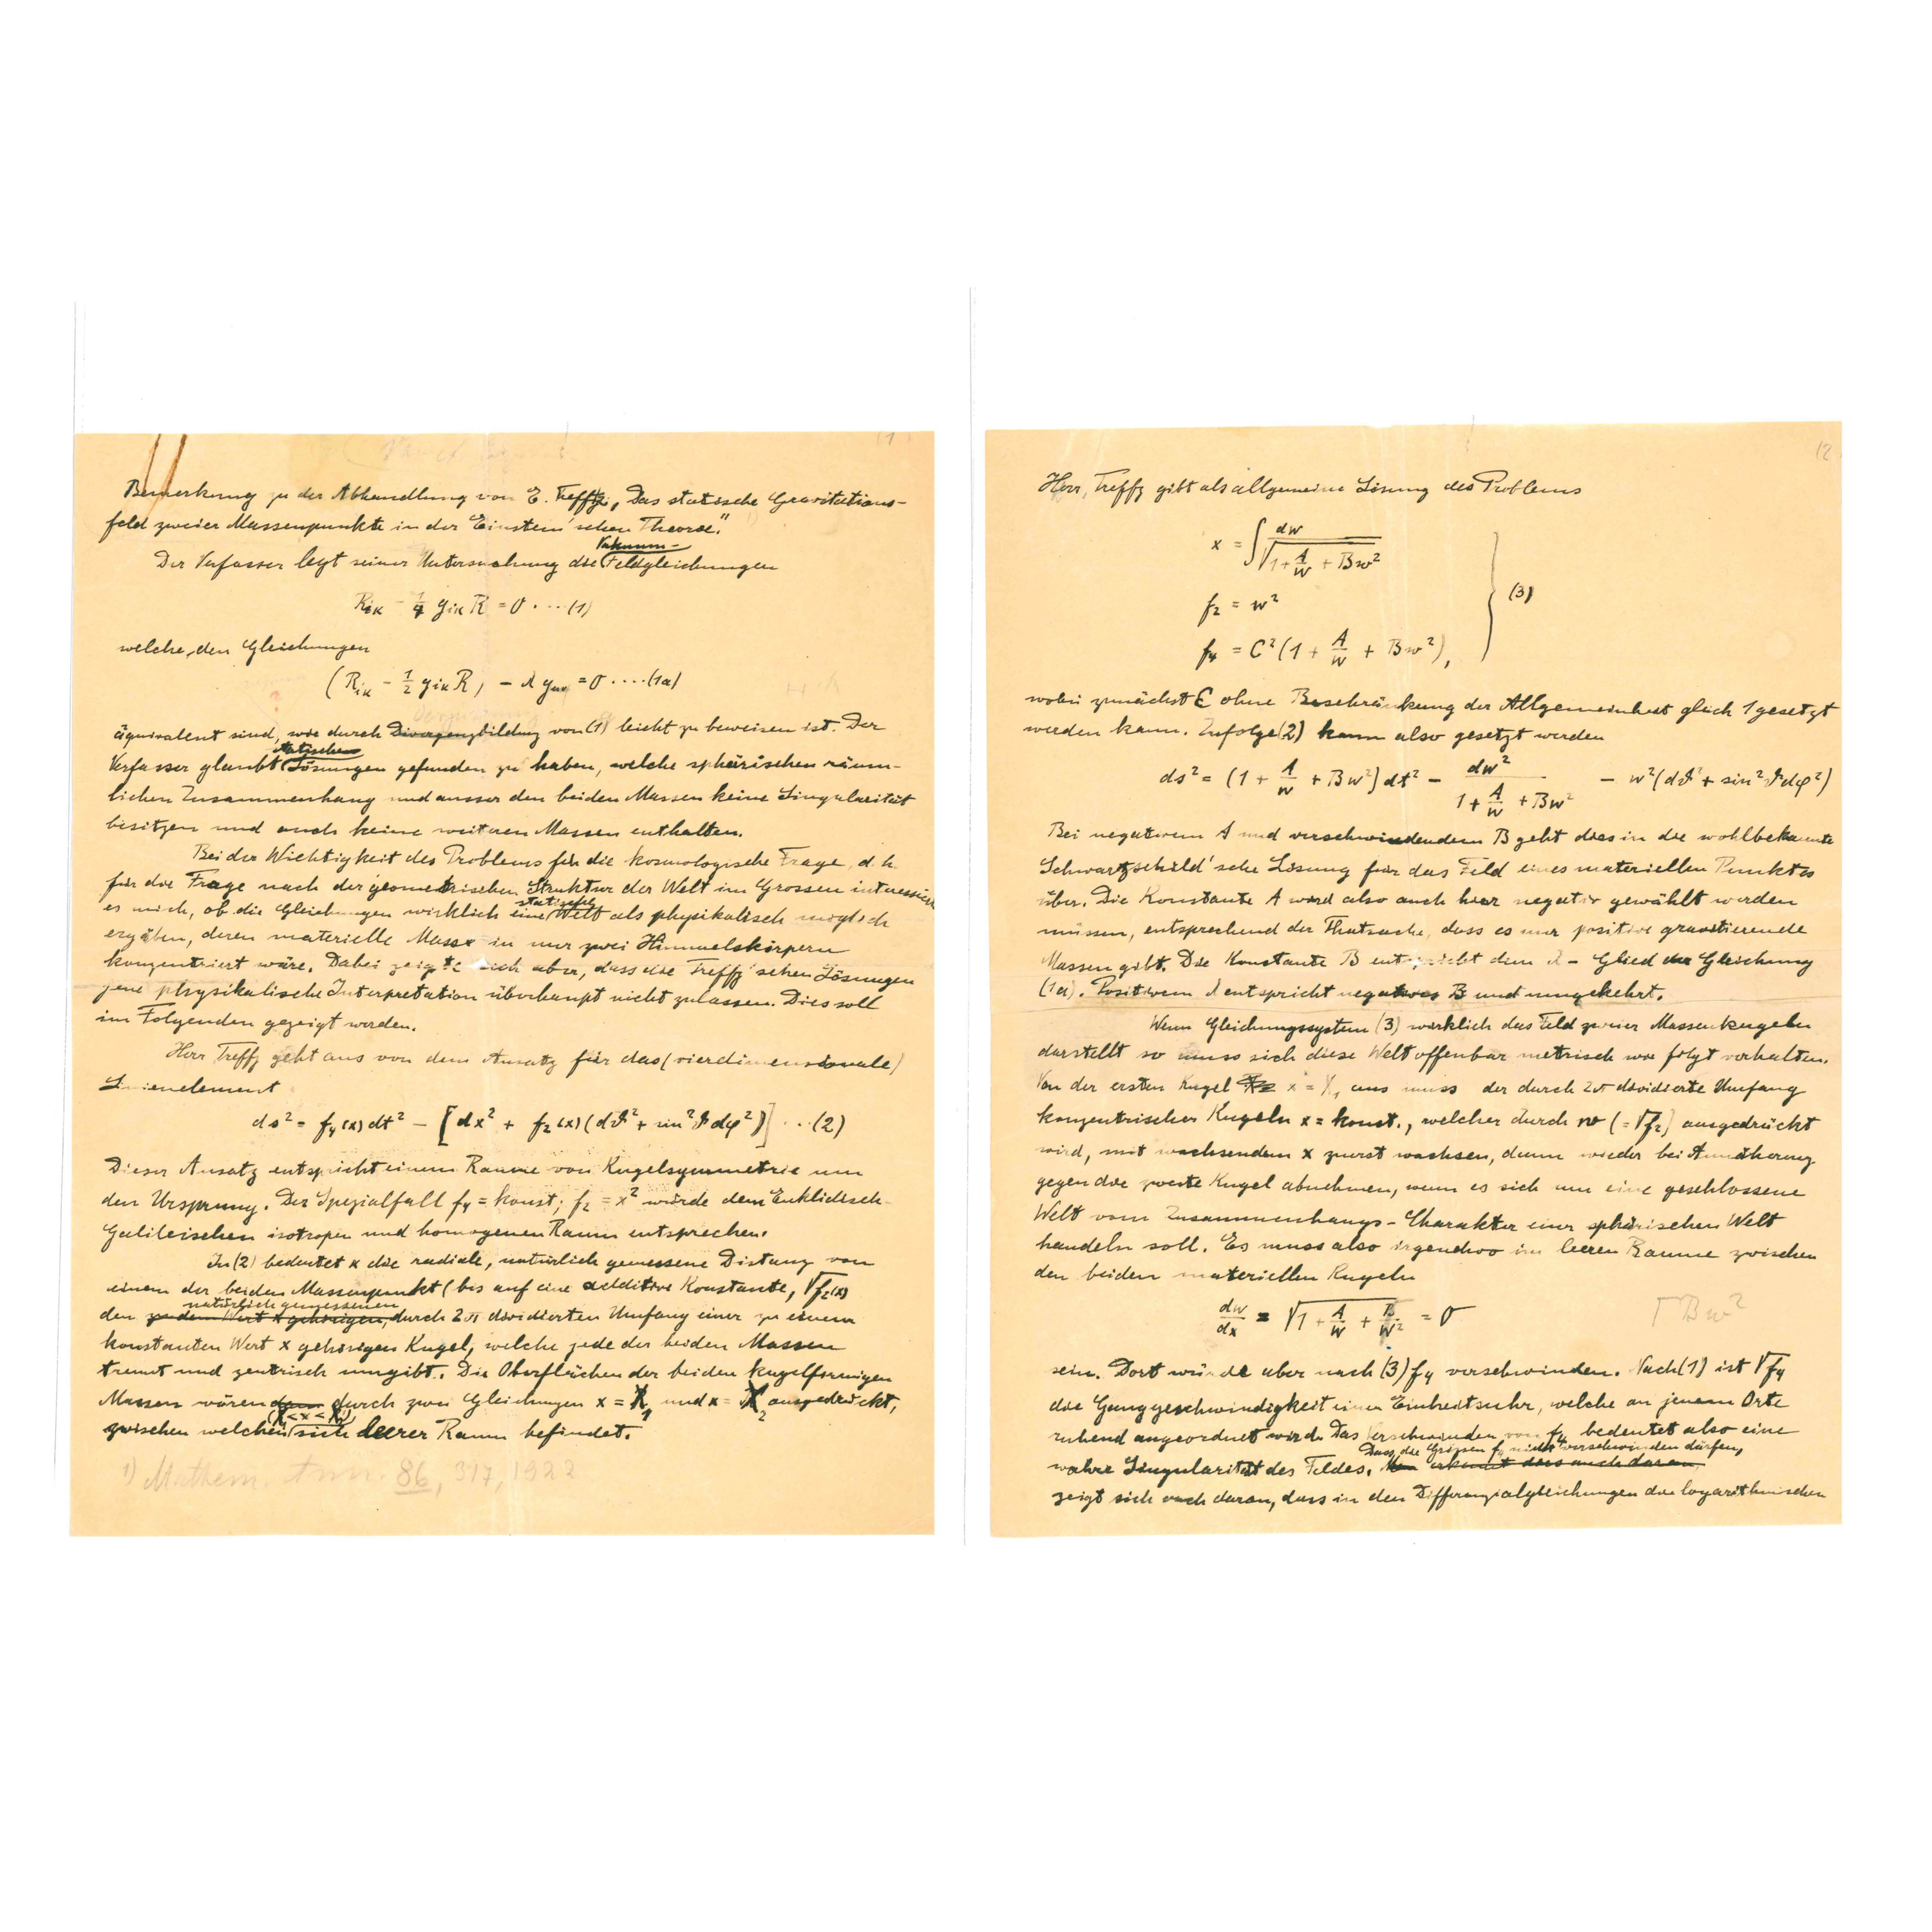 (1)
Bemerkung zu der Abhandlung von E. Trefftz, „Das statische Gravitations-
feld zweier Massenpunkte in der Einstein'schen Theorie." 1)
Vakuum-
Der Verfasser legt seiner Untersuchung die Feldgleichungen
R_{iκ} - 1/4 g_{iκ} R = 0 . ... (1)
welche den Gleichungen
(R_{iκ} - 1/2 g_{iκ} R) - λ g_{iκ} = 0 .... (1a)
äquivalent sind, wie durch Divergenzbildung von (1) leicht zu beweisen ist. Der
statischen
Verfasser glaubt Lösungen gefunden zu haben, welche sphärischen räum-
lichen Zusammenhang und ausser den beiden Massen keine Singularität
besitzen und auch keine weiteren Massen enthalten.
Bei der Wichtigkeit des Problems für die kosmologische Frage, d. h.
für die Frage nach der geometrischen Struktur der Welt im Grossen interessierte
statische
es mich, ob die Gleichungen wirklich eine Welt als physikalisch möglich
ergäben, deren materielle Masse in nur zwei Himmelskörpern
konzentriert wäre. Dabei zeigte sich aber, dass die Treffz'schen Lösungen
jene physikalische Interpretation überhaupt nicht zulassen. Dies soll
im Folgenden gezeigt werden.
Herr Treffz geht aus von dem Ansatz für das (vierdimensionale)
Linienelement
ds² = f₄(x) dt² - [dx² + f₂(x)(dϑ² + sin²ϑ dφ²)] . . (2)
Dieser Ansatz entspricht einem Raume von Kugelsymmetrie um
den Ursprung. Der Spezialfall f₄ = konst; f₂ = x² würde dem Euklidisch-
Galileischen isotropen und homogenen Raum entsprechen.
In (2) bedeutet x die radiale, natürlich gemessene Distanz von
einem der beiden Massenpunkt (bis auf eine additive Konstante, √f₂(x)
natürlich gemessenen
den zu dem Wert x gehörigen, durch 2π dividierten Umfang einer zu einem
konstanten Wert x gehörigen Kugel, welche jede der beiden Massen
trennt und zentrisch umgibt. Die Oberflächen der beiden kugelförmigen
Massen wären dann durch zwei Gleichungen x = X₁ und x = X₂ ausgedrückt,
(X₁ < x < X₂)
zwischen welchen sich leerer Raum befindet.
1) Mathem. Ann. 86, 317, 1922
(2
Herr Treffz gibt als allgemeine Lösung des Problems
x = ∫ dw / √(1 + A/w + Bw²)
f₂ = w²
(3)
f₄ = C² (1 + A/w + Bw²),
wobei zunächst C ohne Beschränkung der Allgemeinheit gleich 1 gesetzt
werden kann. Zufolge (2) kann also gesetzt werden
ds² = (1 + A/w + Bw²) dt² - dw² / (1 + A/w + Bw²) - w² (dϑ² + sin²ϑ dφ²)
Bei negativem A und verschwindendem B geht dies in die wohlbekannte
Schwartzschild'sche Lösung für das Feld eines materiellen Punktes
über. Die Konstante A wird also auch hier negativ gewählt werden
müssen, entsprechend der Thatsache, dass es nur positive gravitierende
Massen gibt. Die Konstante B entspricht dem λ-Glied der Gleichung
(1a). Positivem λ entspricht negatives B und umgekehrt.
Wenn Gleichungssystem (3) wirklich das Feld zweier Massenkugeln
darstellt so muss sich diese Welt offenbar metrisch wie folgt verhalten.
Von der ersten Kugel x = X₁ aus muss der durch 2π dividierte Umfang
konzentrischer Kugeln x = konst., welcher durch w (= √f₂) ausgedrückt
wird, mit wachsendem x zuerst wachsen, dann wieder bei Annäherung
gegen die zweite Kugel abnehmen, wenn es sich um eine geschlossene
Welt vom Zusammenhangs-Charakter einer sphärischen Welt
handeln soll. Es muss also irgendwo im leeren Raume zwischen
den beiden materiellen Kugeln
dw/dx = √(1 + A/w + B/w²) = 0
Bw²
sein. Dort würde aber nach (3) f₄ verschwinden. Nach (1) ist √f₄
die Ganggeschwindigkeit einer Einheitsuhr, welche an jenem Orte
ruhend angeordnet wird. Das Verschwinden von f₄ bedeutet also eine
Dass die Grössen f₄ nicht verschwinden dürfen,
wahre Singularität des Feldes. Man erkennt dies auch daran,
zeigt sich auch daran, dass in den Differenzialgleichungen die logarithmischen